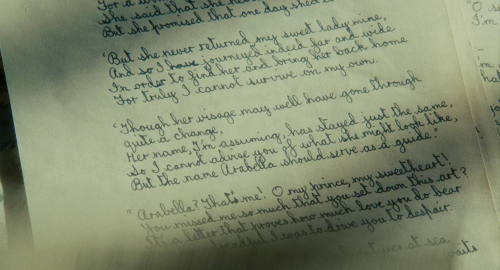 For a
She said that she
But she promised that one day she'd
'But she never returned, my sweet lady mine,
And so I have journeyed indeed far and wide
In order to find her and bring her back home
For truly I cannot survive on my own.
'Though her visage may well have gone through
quite a change,
Her name, I'm assuming, has stayed just the same,
So I cannot advise you of what she might look like,
But the name Arabella should serve as a guide."
"Arabella? That's me! O my prince, my sweetheart!
You missed me so much that you set down this art?
It's a letter that proves how much love you do bear
I was to drive you to despair.
at sea
"O
I'm